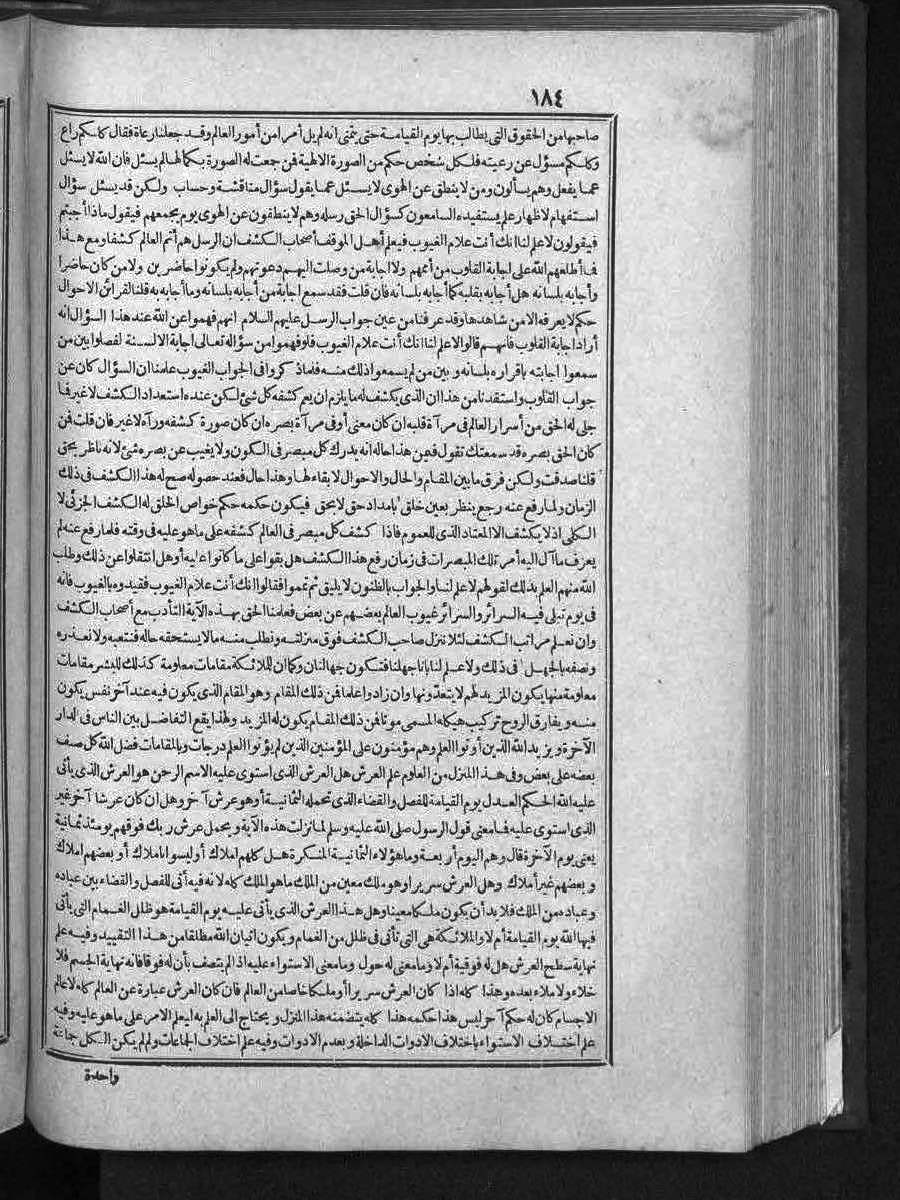 ١٨٤
صاحبها من الحقوق التي يطالب بها يوم القيامة حتى يتمنى انه لم يل أمرا من أمور العالم وقد جعلنا رعاة فقال كلكم راع
وكلكم مسؤل عن رعيته فلكل شخص حكم من الصورة الالهية فمن جمعت له الصورة بكمالها لم يسئل فان الله لا يسئل
عما يفعل وهم يسألون ومن لا ينطق عن الهوى لا يسئل عما يقول سؤال مناقشة وحساب ولكن قد يسئل سؤال
استفهام لاظهار علم يستفيده السامعون كسؤال الحق رسله وهم لا ينطقون عن الهوى يوم يجمعهم فيقول ماذا أجبتم
فيقولون لا علم لنا انك أنت علام الغيوب فيعلم أهل الموقف أصحاب الكشف ان الرسل هم أتم العالم كشفا ومع هذا
فما أطلعهم الله على اجابة القلوب من أممهم ولا اجابة من وصلت اليهم دعوتهم ولم يكونوا حاضرين ولا من كان حاضرا
وأجابه بلسانه هل أجابه بقلبه كما أجابه بلسانه فان قلت فقد سمع اجابة من أجابه بلسانه وما أجابه به قلنا القرائن الاحوال
حكم لا يعرفه الا من شاهدها وقد عرفنا من عين جواب الرسل عليهم السلام انهم فهموا عن الله عند هذا السؤال انه
أراد اجابة القلوب فانهم قالوا لا علم لنا انك أنت علام الغيوب فلو فهموا من سؤاله تعالى اجابة الالسنة لفصلوا بين من
سمعوا اجابته باقراره بلسانه وبين من لم يسمعوا ذلك منه فلما ذكروا في الجواب الغيوب علمنا ان السؤال كان عن
جواب القلوب واستفدنا من هذا ان الذي يكشف له ما يلزم ان يعم كشفه كل شئ لكن عنده استعداد الكشف لا غير فما
جلى له الحق من أسرار العالم في مرآة قلبه ان كان معنى أو في مرآة بصره ان كان صورة كشفه ورآه لا غير فان قلت فمن
كان الحق بصره قد سمعتك تقول فيمن هذا حاله انه يدرك كل مبصر في الكون ولا يغيب عن بصره شئ لانه ناظر بحق
قلنا صدقت ولكن فرق ما بين المقام والحال والاحوال لا بقاء لها وهذا حال فعند حصوله صح له هذا الكشف في ذلك
الزمان ولما رفع عنه رجع ينظر بعين خلق بامداد حق لا بحق فيكون حكمه حكم خواص الخلق له الكشف الجزئي لا
الكلي اذ لا يكشف الا المعتاد الذي للعموم فاذا كشف كل مبصر في العالم كشفه على ماهو عليه في وقته فلما رفع عنه لم
يعرف ما آل اليه أمر تلك المبصرات في زمان رفع هذا الكشف هل بقوا على ما كانوا عليه أو هل انتقلوا عن ذلك وطلب
الله منهم العلم بذلك لقولهم لا علم لنا والجواب بالظنون لا يليق ثم تمموا فقالوا انك أنت علام الغيوب فقيدوه بالغيوب فانه
في يوم تبلى فيه السرائر والسرائر غيوب العالم بعضهم عن بعض فعلمنا الحق بهذه الآية التأدب مع أصحاب الكشف
وان نعلم مراتب الكشف لئلا ننزل صاحب الكشف فوق منزلته ونطلب منه ما لا يستحقه حاله فنتعبه ولا نعذره
ونصفه بالجهل في ذلك ولا علم لنا بانا جهلنا فنكون جهالنان وكما ان للملائكة مقامات معلومة كذلك للبشر مقامات
معلومة منها يكون المزيد لهم لا يتعدّونها وان زادوا علما فمن ذلك المقام وهو المقام الذي يكون فيه عند آخر نفس يكون
منه ويفارق الروح تركيب هيكله المسمى موتا فمن ذلك المقام يكون له المزيد ولهذا يقع التفاضل بين الناس في الدار
الآخرة ويزيد الله الذين أوتوا العلم وهم مؤمنون على المؤمنين الذين لم يؤتوا العلم درجات وبالمقامات فضل الله كل صنف
بعضه على بعض وفي هذا المنزل من العلوم علم العرش هل العرش الذي استوى عليه الاسم الرحمن هو العرش الذي يأتى
عليه الله الحكم العدل يوم القيامة للفصل والقضاء الذي تحمله الثمانية أو هو عرش آخر وهل ان كان عرشا آخر غير
الذي استوى عليه فما معنى قول الرسول صلى الله عليه وسلم لما نزلت هذه الآية ويحمل عرش ربك فوقهم يومئذ ثمانية
يعنى يوم الآخرة قال وهم اليوم أربعة وما هؤلاء الثمانية المنكرة هل كلهم املاك أو ليسوا باملاك أو بعضهم املاك
وبعضهم غير أملاك وهل العرش سرير او هو ملك معين من الملك ما هو الملك كله لانه فيه أتى للفصل والقضاء بين عباده
وعباده من الملك فلا بد أن يكون ملكا معينا وهل هذا العرش الذي يأتى عليه يوم القيامة هو ظلل الغمام التى يأتى
فيها الله يوم القيامة أم لا والملائكة هي التى تأتى في ظلل من الغمام ويكون اتيان الله مطلقا من هذا التقييد وفيه علم
نهاية سطح العرش هل له فوقية أم لا وما معنى له حول وما معنى الاستواء عليه اذ لم يتصف بأن له فوقا فانه نهاية الجسم فلا
خلاء ولا ملاء بعده وهذا كله اذا كان العرش سريرا أو ملكا خاصا من العالم فان كان العرش عبارة عن العالم كله لا عالم
الاجسام كان له حكم آخر ليس هذا حكمه هذا كله يتضمنه هذا المنزل ويحتاج الى العلم به ليعلم الامر على ماهو عليه وفيه
علم اختلاف الاستواء باختلاف الادوات الداخلة وبعدم الادوات وفيه علم اختلاف الجماعات ولم لم يكن الكل جماعة
واحدة